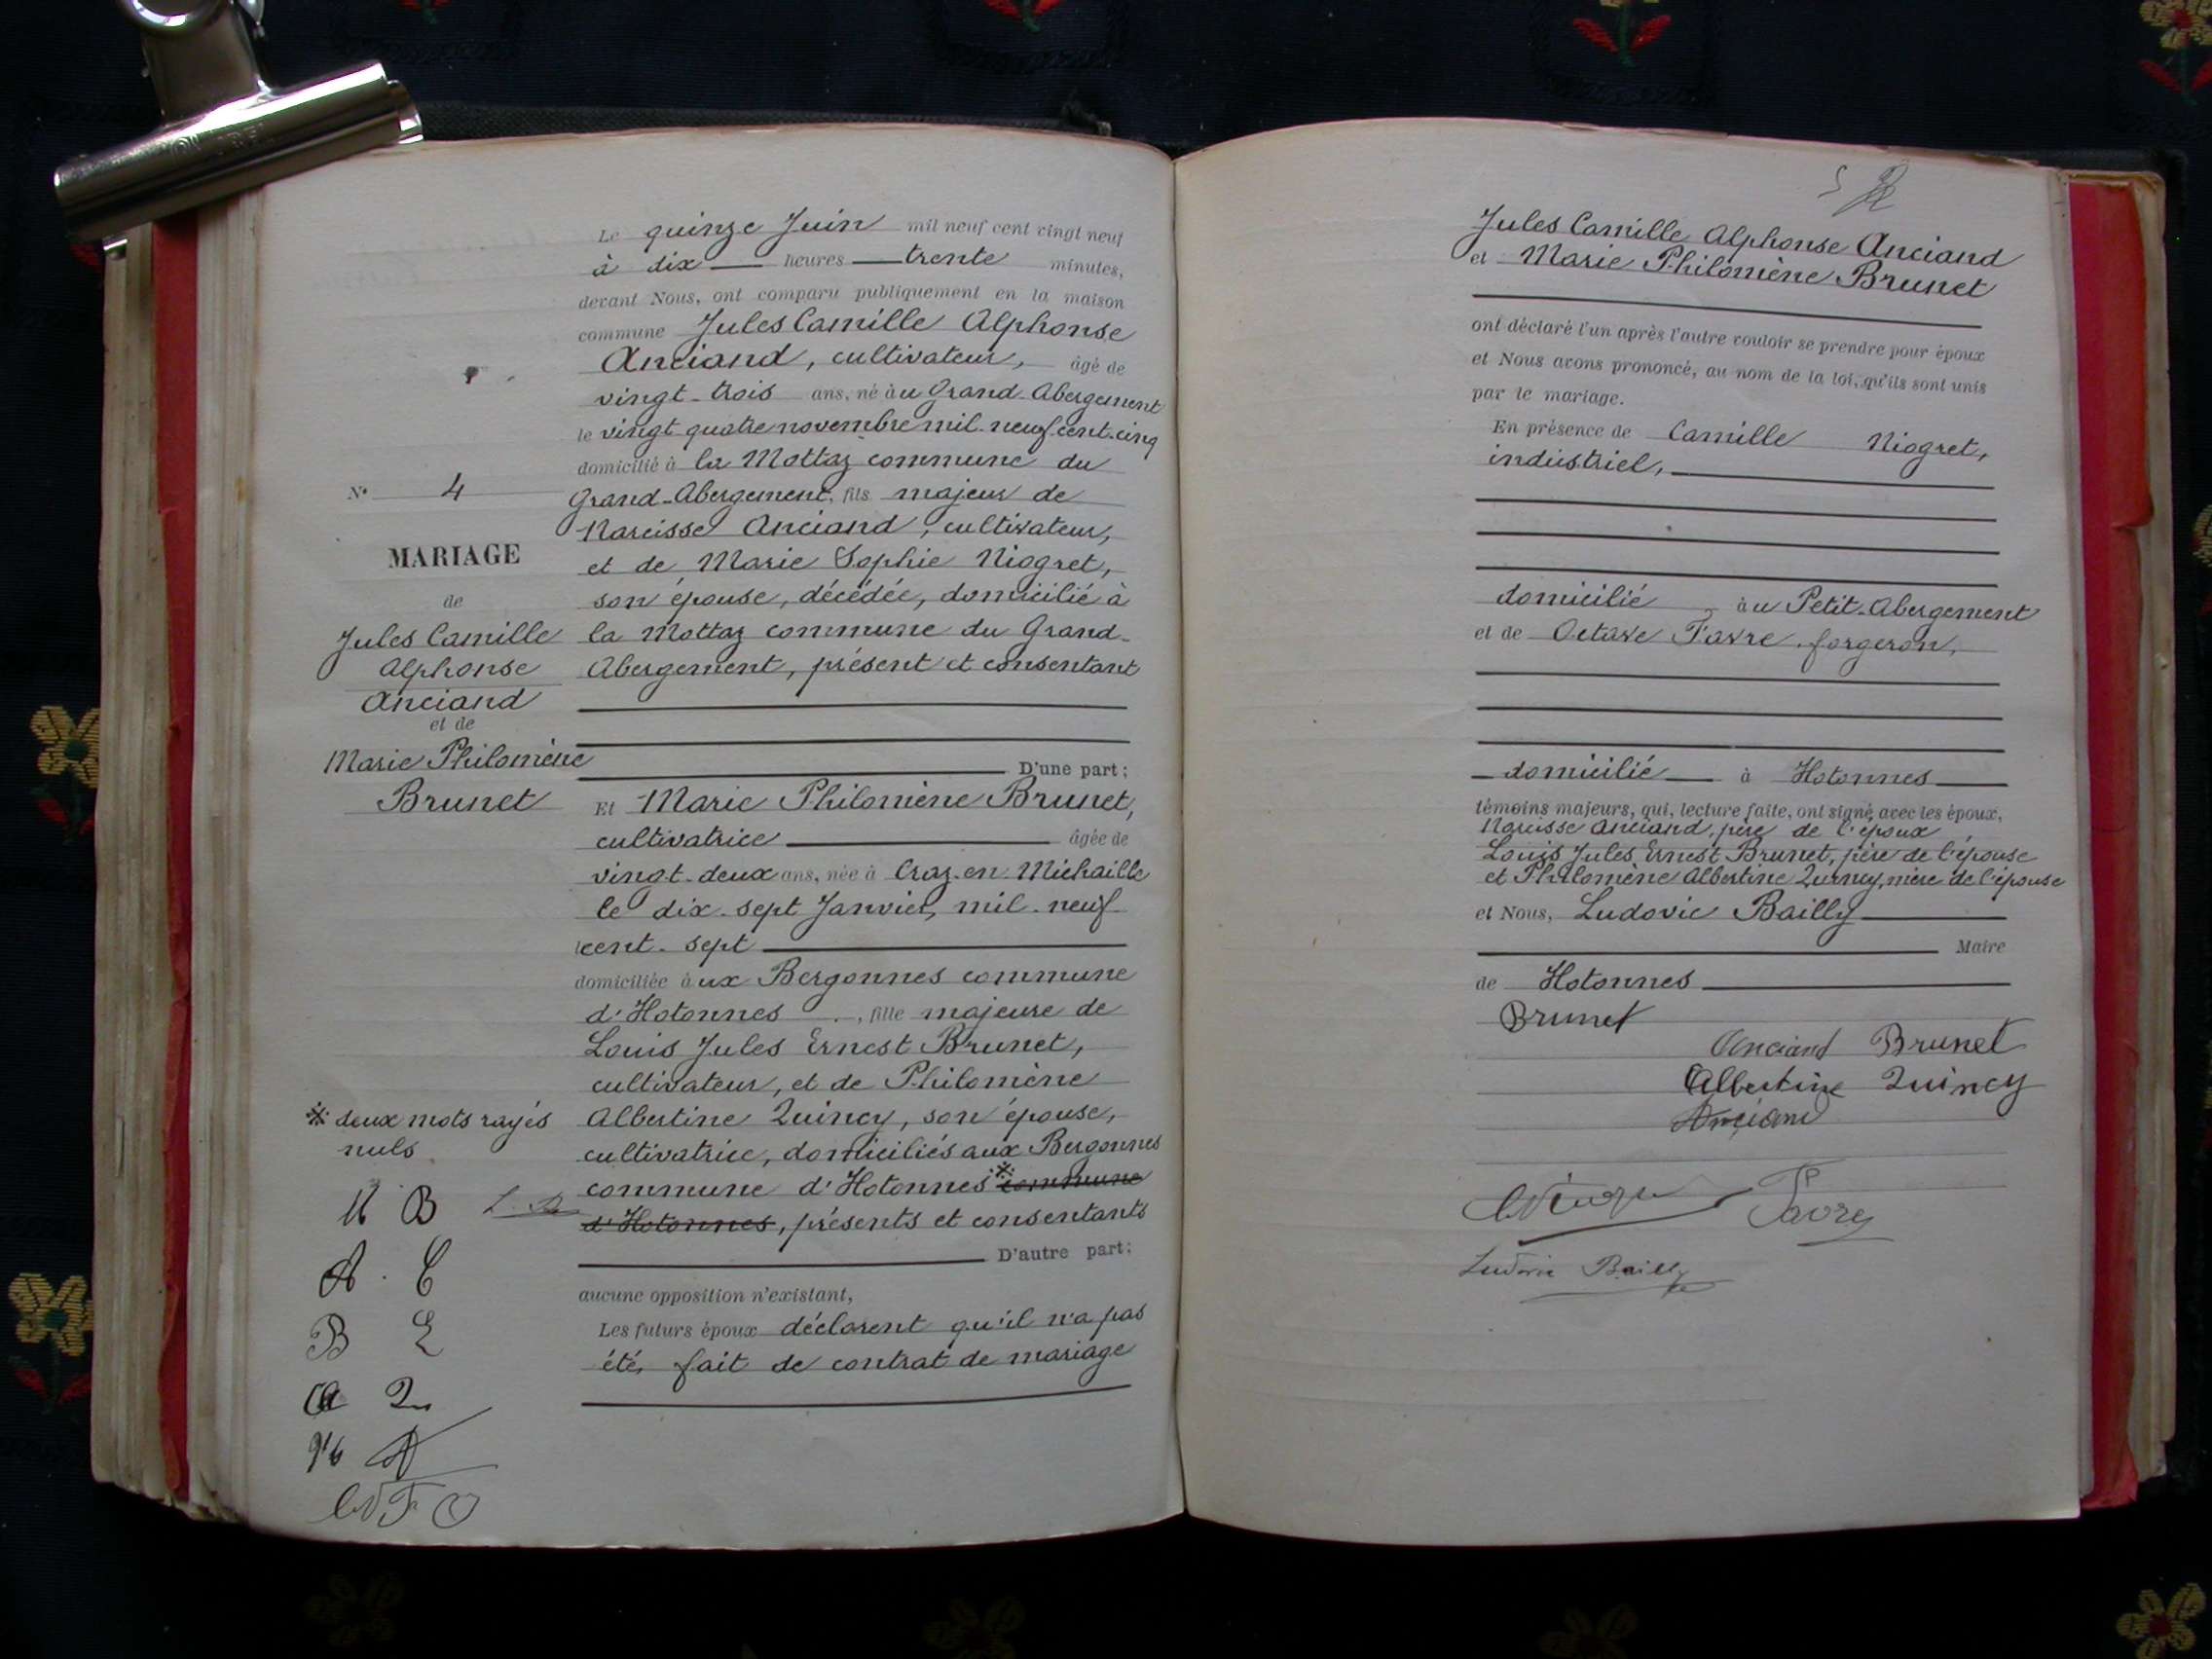 Le quinze Juin mil neuf cent vingt neuf
à dix heures trente minutes,
devant Nous, ont comparu publiquement en la maison
commune Jules Camille Alphonse
Anciand, cultivateur, âgé de
vingt-trois ans, né àu Grand-Abergement
le vingt-quatre novembre mil-neuf-cent-cinq
domicilié à la Mottaz commune du
Grand-Abergement, fils majeur de
Narcisse Anciand, cultivateur,
et de Marie Sophie Niogret,
son épouse, décédée, domicilié à
la Mottaz commune du Grand-
Abergement, présent et consentant
D'une part;
Et Marie Philomène Brunet,
cultivatrice âgée de
vingt-deux ans, née à Craz-en-Michaille
le dix-sept Janvier, mil-neuf-
cent-sept
domiciliée àux Bergonnes commune
d'Hotonnes, fille majeure de
Louis Jules Ernest Brunet,
cultivateur, et de Philomène
Albertine Quincy, son épouse,
cultivatrice, domiciliés aux Bergonnes
commune d'Hotonnes※ commune
d'Hotonnes, présents et consentants
D'autre part;
aucune opposition n'existant,
Les futurs époux déclarent qu'il n'a pas
été fait de contrat de mariage
N° 4
MARIAGE
de
Jules Camille
Alphonse
Anciand
et de
Marie Philomène
Brunet
※ deux mots rayés
nuls
B
A. C
B L
A Q
Jules Camille Alphonse Anciand
et Marie Philomène Brunet
ont déclaré l'un après l'autre vouloir se prendre pour époux
et Nous avons prononcé, au nom de la loi, qu'ils sont unis
par le mariage.
En présence de Camille Niogret,
industriel,
domicilié àu Petit-Abergement
et de Octave Favre, forgeron,
domicilié à Hotonnes
témoins majeurs, qui, lecture faite, ont signé avec les époux,
Narcisse Anciand, père de l'époux,
Louis Jules Ernest Brunet, père de l'épouse
et Philomène Albertine Quincy, mère de l'épouse
et Nous, Ludovic Bailly
Maire
de Hotonnes
Brunet
Anciand Brunet
Albertine Quincy
Anciand
Favre
Ludovic Bailly